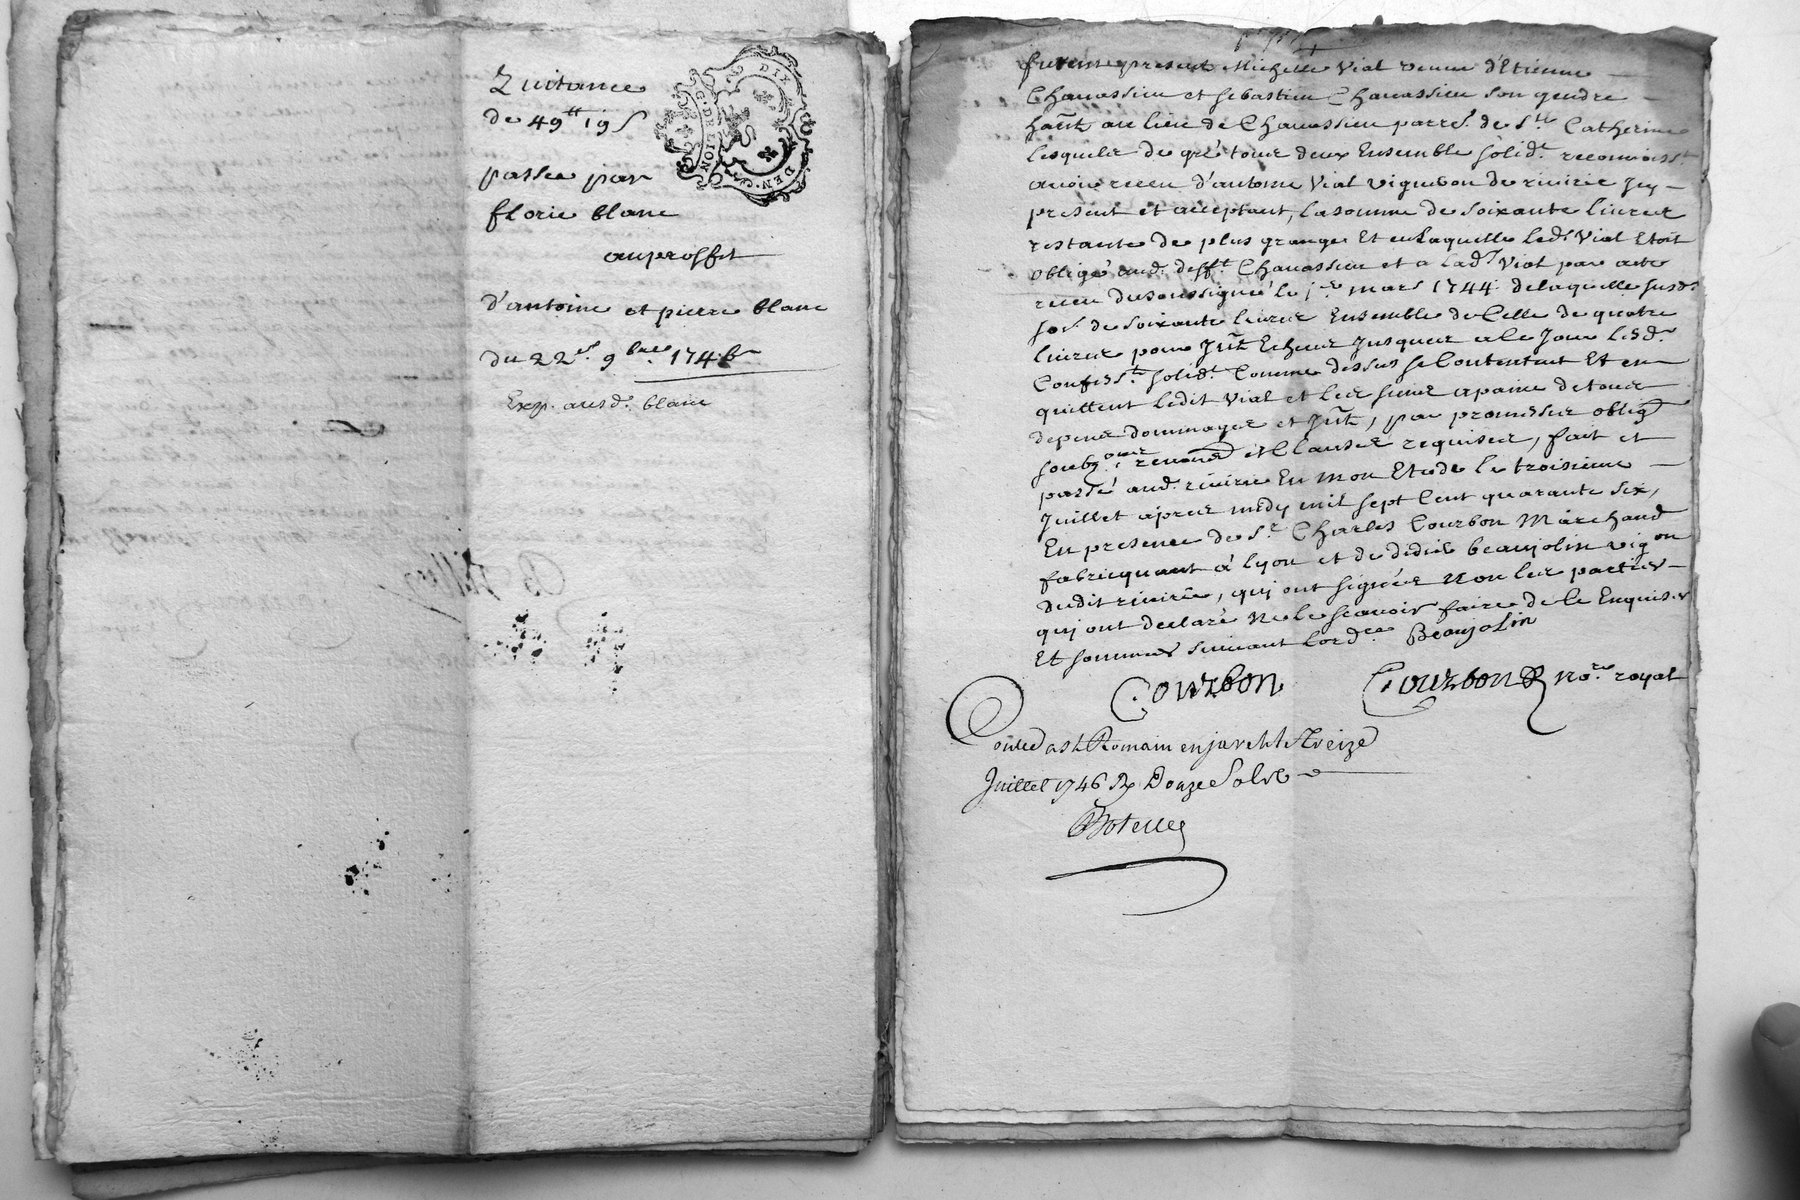 Quitance
de 49tt 19 s
passée par
florie blanc
au proffit
d'antoine et pierre blanc
du 22e. 9bre. 1746
Exp. ausd. blanc
G. DE LION
DIX
DEN.
furent present Michelle Vial veuve d'Etienne
Chavassieu et sebastien Chavassieu son gendre
hant au lieu de Chavassieu parres. de Ste Catherine
lesquels de gré tous deux Ensemble solidt. reconnoisst
avoir receu d'antoine Vial vigneron de riviríe Icy
present et acceptant, la somme de soixante livres
restante de plus grange Et en Laquelle led. Vial Etoit
obligé aud. defft. Chavassieu et a lad. Vial par acte
receu du soussigné le 1er mars 1744. de laquelle susd.
som. de soixante livres Ensemble de Celle de quatre
livres pour Jnt Echeus Jusques a le Jour lesd.
Confess.ts solidt. Comme dessus se Contentent Et en
quittent ledit Vial et les siens a paine de tous
depens dommages et Jnt, par promesses oblig.
soub.ons renond et Clauses requises, fait et
passé aud. riviríe En mon Etude le troisieme
Juillet apres midy mil sept Cent quarante six,
En presence de Sr. Charles Courbon Marchand
fabriquant à lyon et de didier beaujolin vigon
dudit riviríe, qui ont signés Non les parties
qui ont declaré Ne le sçavoir faire de le Enquises
Et sommées suivant lordce Beaujolin
Courbon Courbon nore. royal
Conlle a st Romain en jarest le treize
Juillet 1746 R Douze Sols